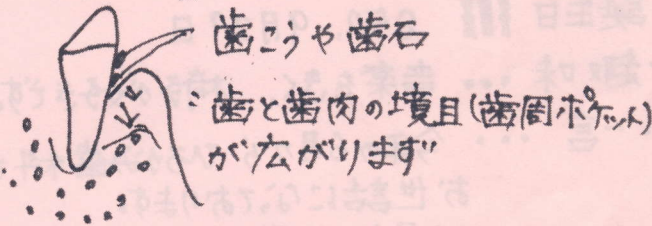 歯こうや歯石
:歯と歯肉の境目(歯周ポケット)
が広がります"